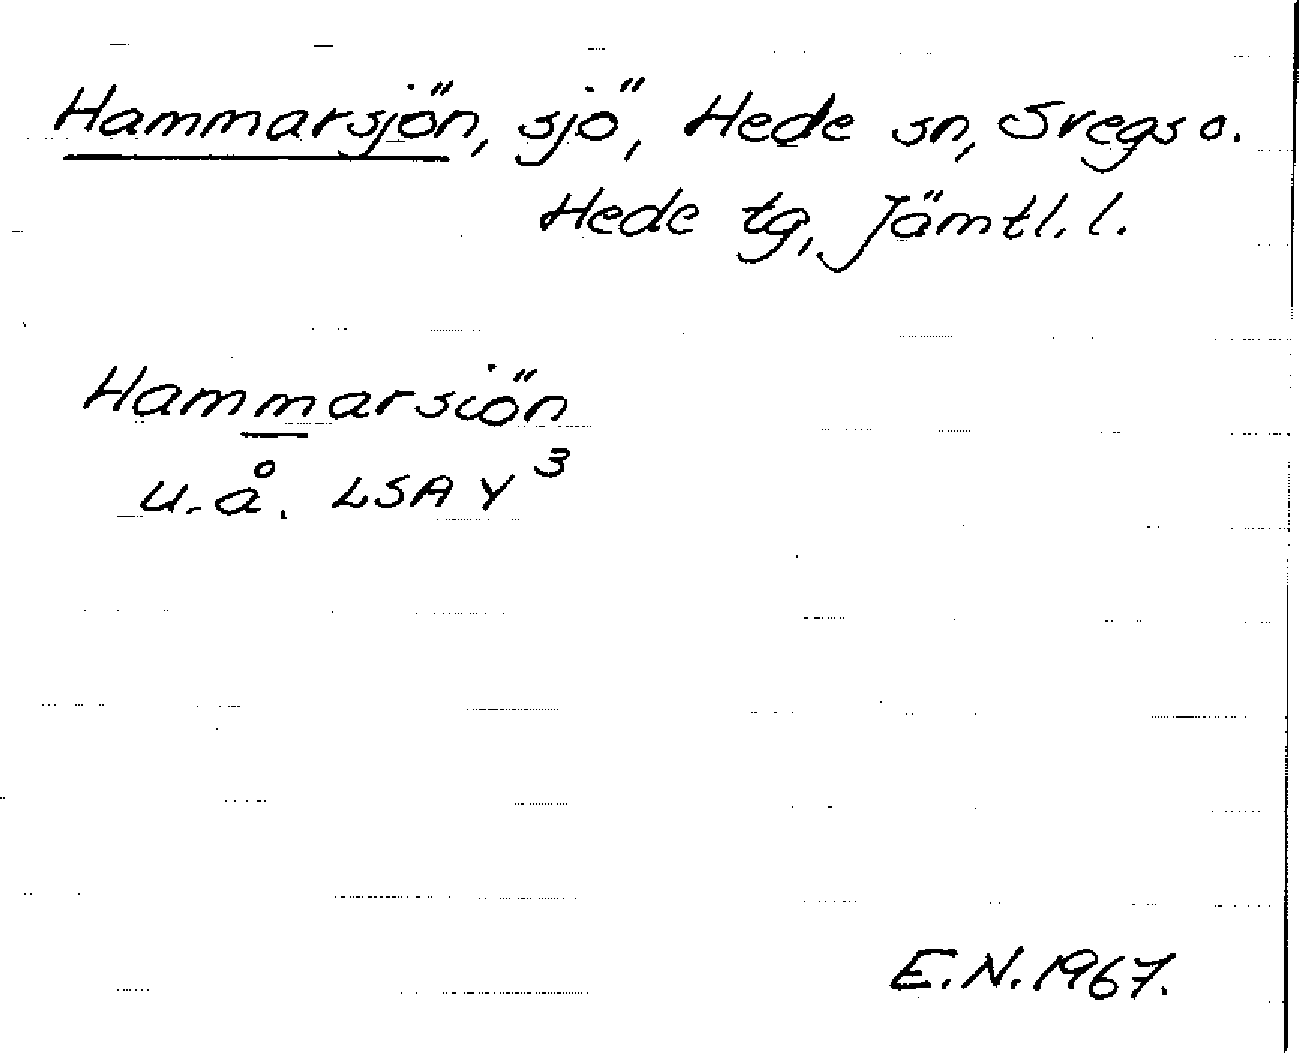 Hammarsjön, sjö, Hede sn, Svegs o.
Hede tg, Jämtl. l.
Hammarsiön
u. å. LSA Y 3
E. N. 1967.